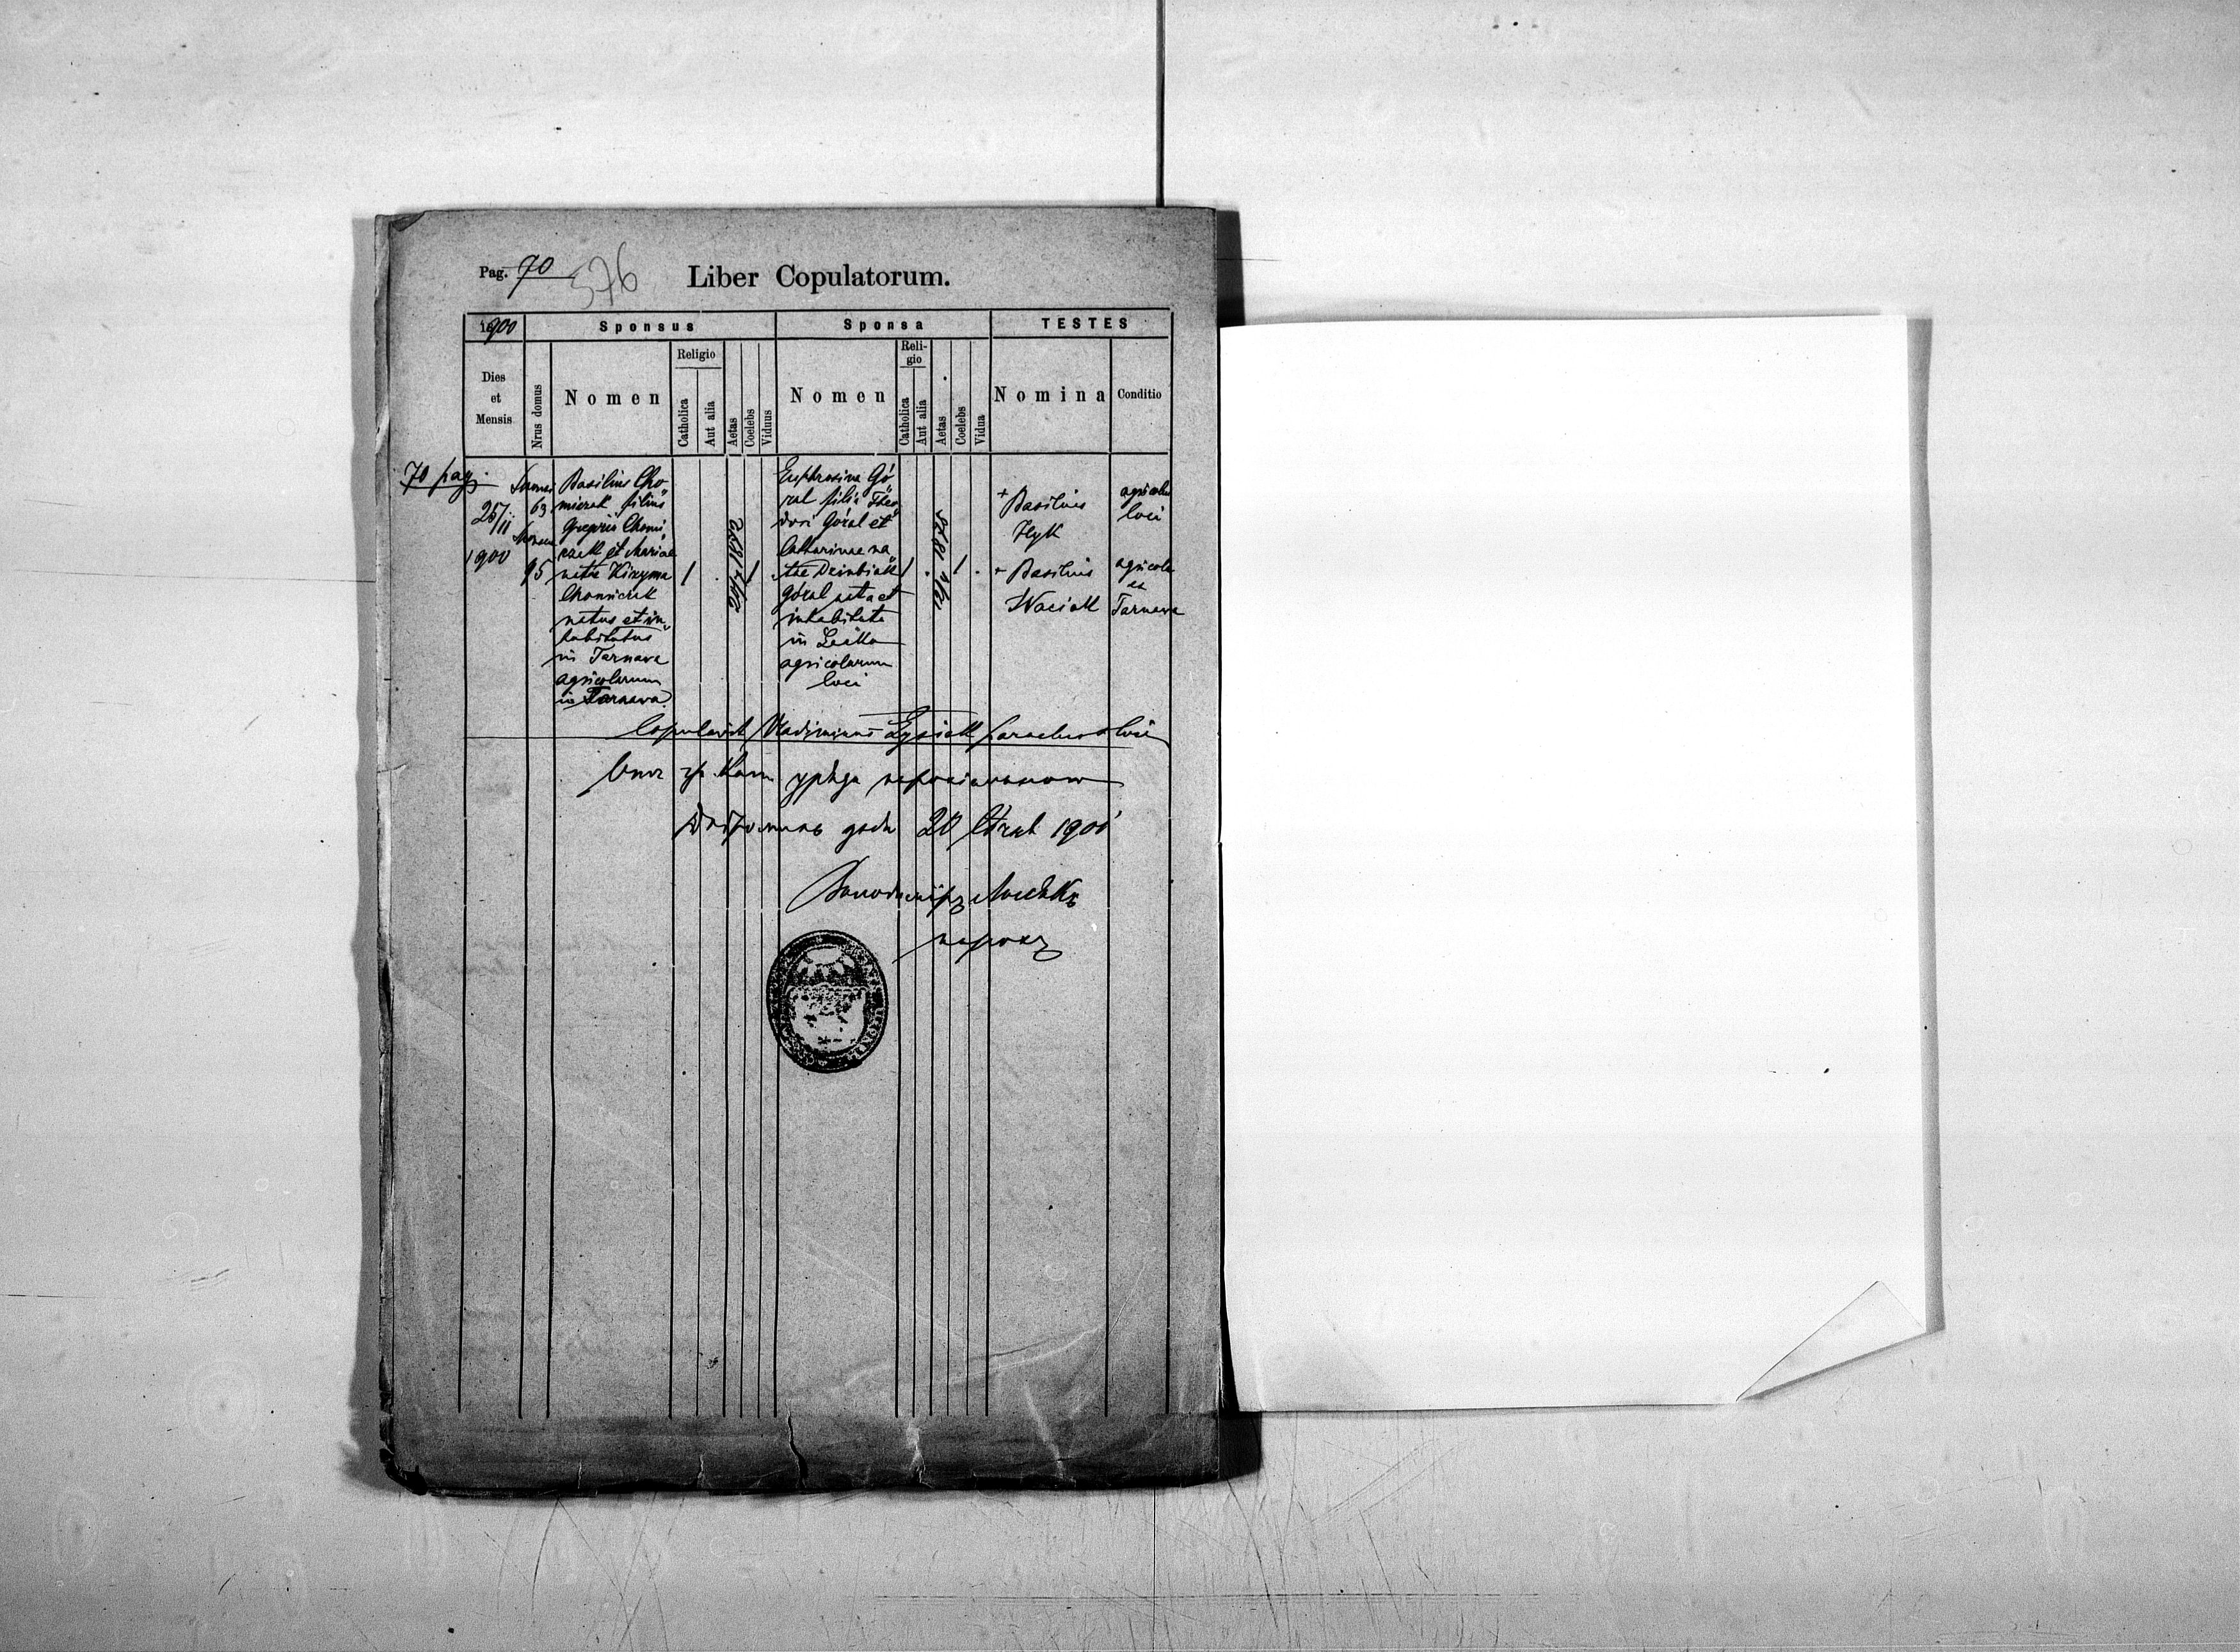 Pag. 70 576
Liber Copulatorum.
1900 Sponsus Sponsa TESTES
Dies et Mensis
Nrus domus
Nomen
Religio
Catholica
Aut alia
Aetas
Coelebs
Viduus
Nomen
Reli-
gio
Catholica
Aut alia
Aetas
Coelebs
Vidua
Nomina
Conditio
70 pag.
25/II
1900
63
95
Basilius Cho„
miczak filius
Gregorii Chomi„
czak et Mariae
natae Kizyma
Chomiczak
natus et in„
habitatus
in Tarnava
agricolarum
in Tarnava
1
1
Euphrosina Gó„
ral filia Theo„
dosi Góral et
Catharinae na„
tae Dziubiak
Góral nata et
inhabitata
in
agricolarum
loci
1
1
+ Basilius
Hyk
+ Basilius
Waciak
agricola
loci
agricola
ex
Tarnawa
Copulavit Vladimirus parochus loci
уряда
дня 20 1901
Володимиръ
парохъ